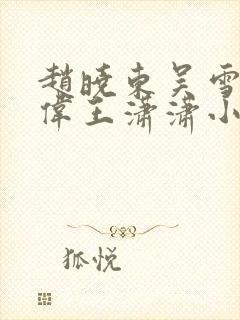 趙曉東吴雪
偉王瀟瀟小
狐悦